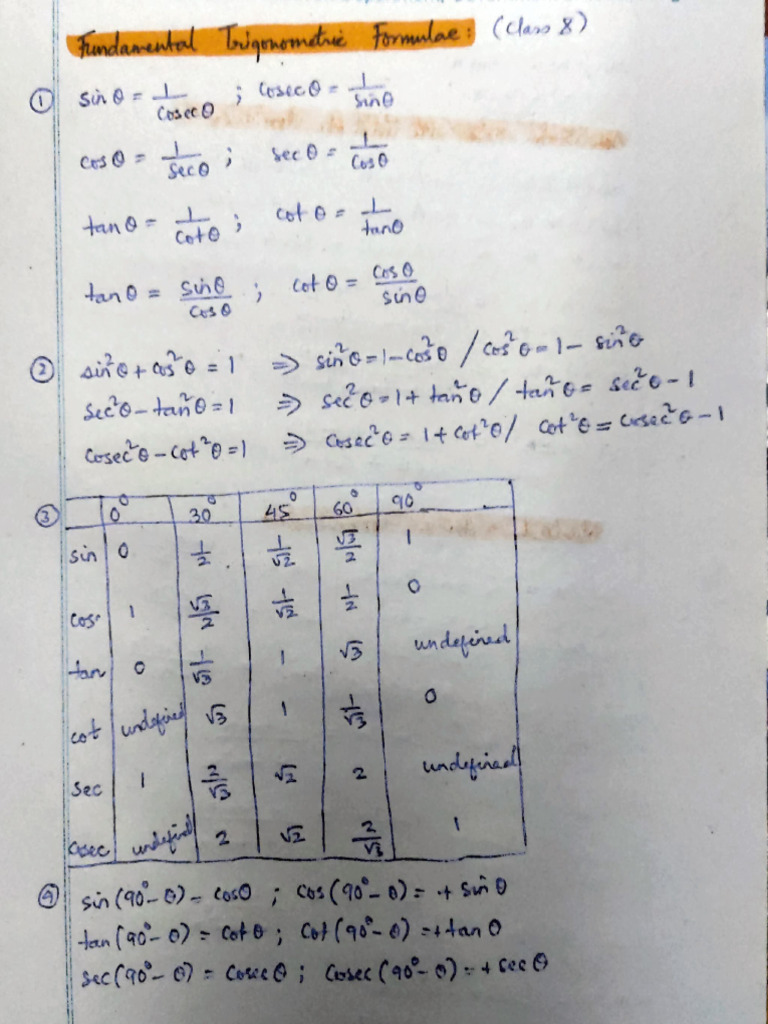 Fundamental Trigonometric Formulae: (Class 8)
① sin θ = 1/Cosec θ ; Cosec θ = 1/Sin θ
cos θ = 1/Sec θ ; sec θ = 1/Cos θ
tan θ = 1/Cot θ ; cot θ = 1/tan θ
tan θ = Sin θ/Cos θ ; Cot θ = Cos θ/Sin θ
② sin²θ + cos²θ = 1 ⇒ sin²θ = 1 - cos²θ / cos²θ = 1 - sin²θ
Sec²θ - tan²θ = 1 ⇒ Sec²θ = 1 + tan²θ / tan²θ = sec²θ - 1
Cosec²θ - cot²θ = 1 ⇒ Cosec²θ = 1 + Cot²θ / Cot²θ = Cosec²θ - 1
③ 0° 30° 45° 60° 90°
sin 0 1/2 1/√2 √3/2 1
cos 1 √3/2 1/√2 1/2 0
tan 0 1/√3 1 √3 undefined
cot undefined √3 1 1/√3 0
Sec 1 2/√3 √2 2 undefined
Cosec undefined 2 √2 2/√3 1
④ sin (90° - θ) = cosθ ; cos (90° - θ) = + Sin θ
tan (90° - θ) = Cot θ ; Cot (90° - θ) = + tan θ
Sec (90° - θ) = Cosec θ ; Cosec (90° - θ) = + Sec θ